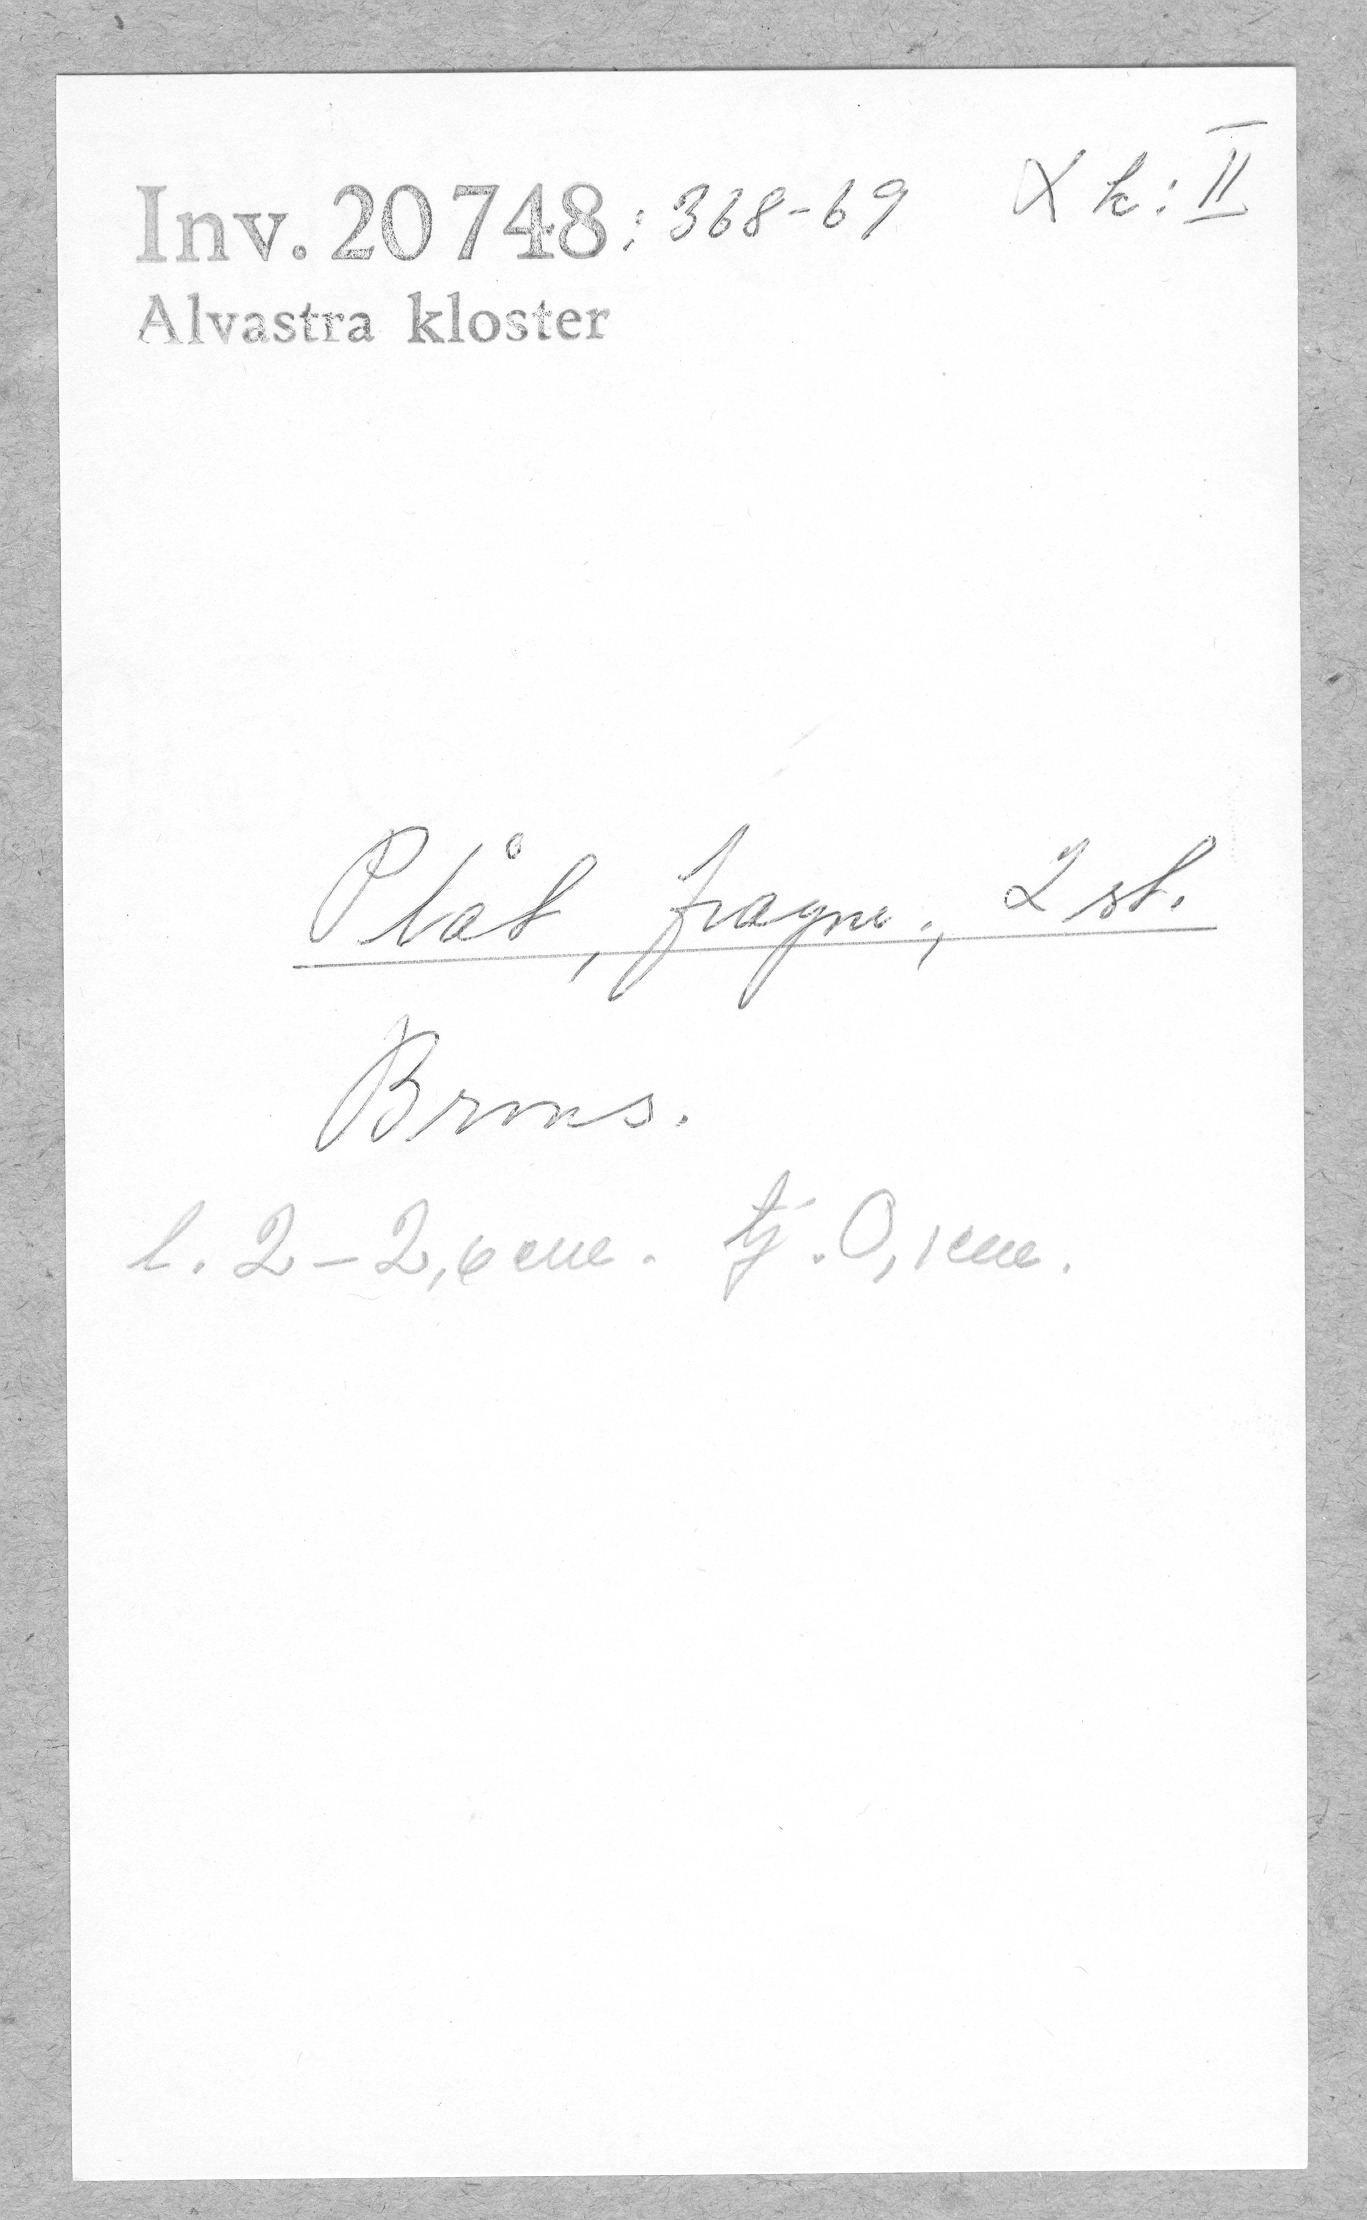 Inv. 20748:368-69 X k:II
Alvastra kloster
Plåt, fragm., 2 st.
Brons.
l. 2-2,6 cm. tj. 0,1 cm.